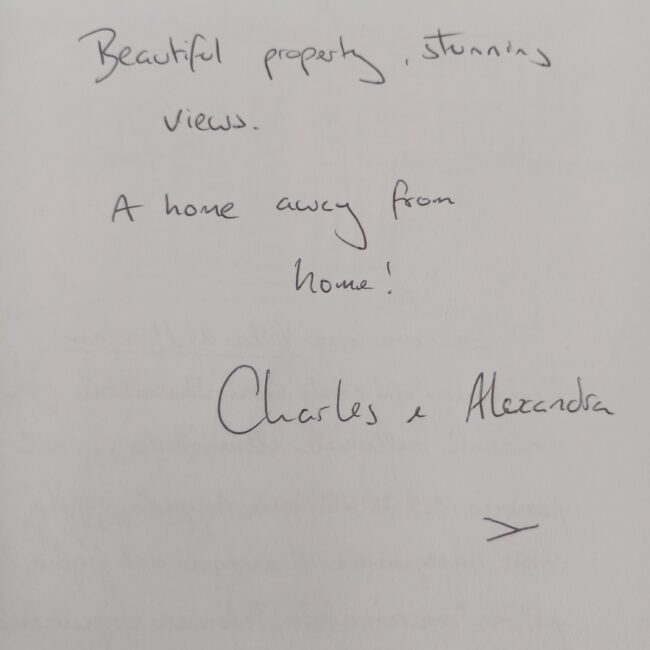 Beautiful property, stunning
views.
A home away from
home!
Charles e Alexandra